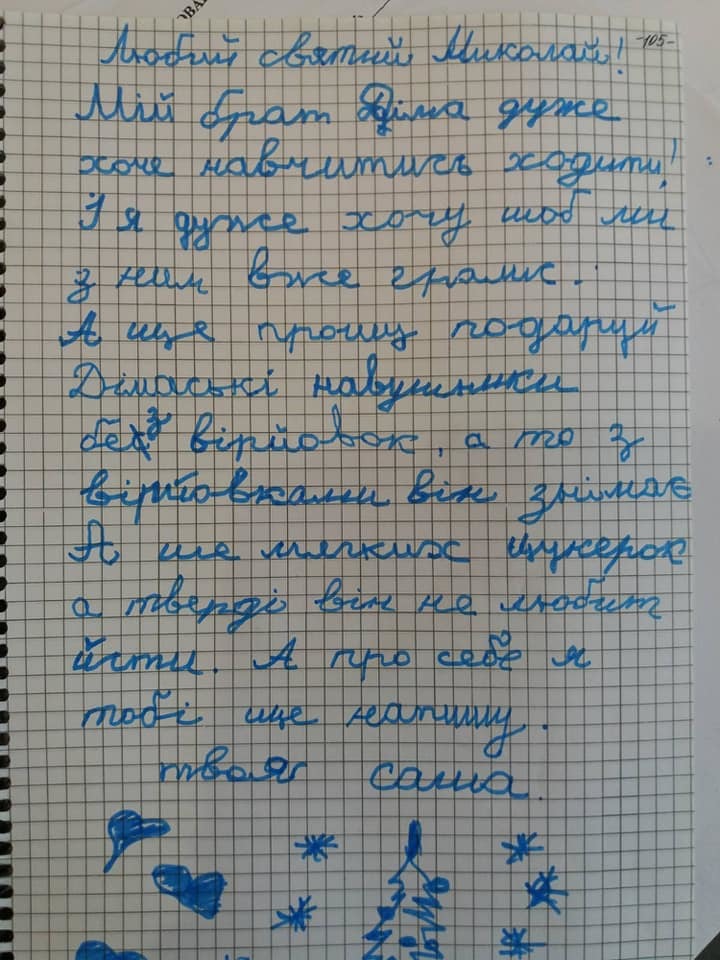 -105-
Любий святий Миколай!
Мій брат Діма дуже
хоче навчитись ходити!
І я дуже хочу шоб ми
з ним вже грались.
А ще прошу подаруй
Дімаські навушники
без вірйовок, а то з
вірйовками він знімає
А ше мягких цукерок
а тверді він не любит
йісти. А про себе я
тобі ще напишу.
твоя саша.